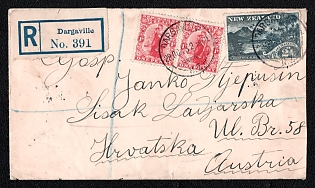 R
Dargaville
No. 391
NEW ZEALAND
Gosp.
Janko Stjepusin
Sisak Ladjarska
Ul. Br. 58
Hrvatska
Austria